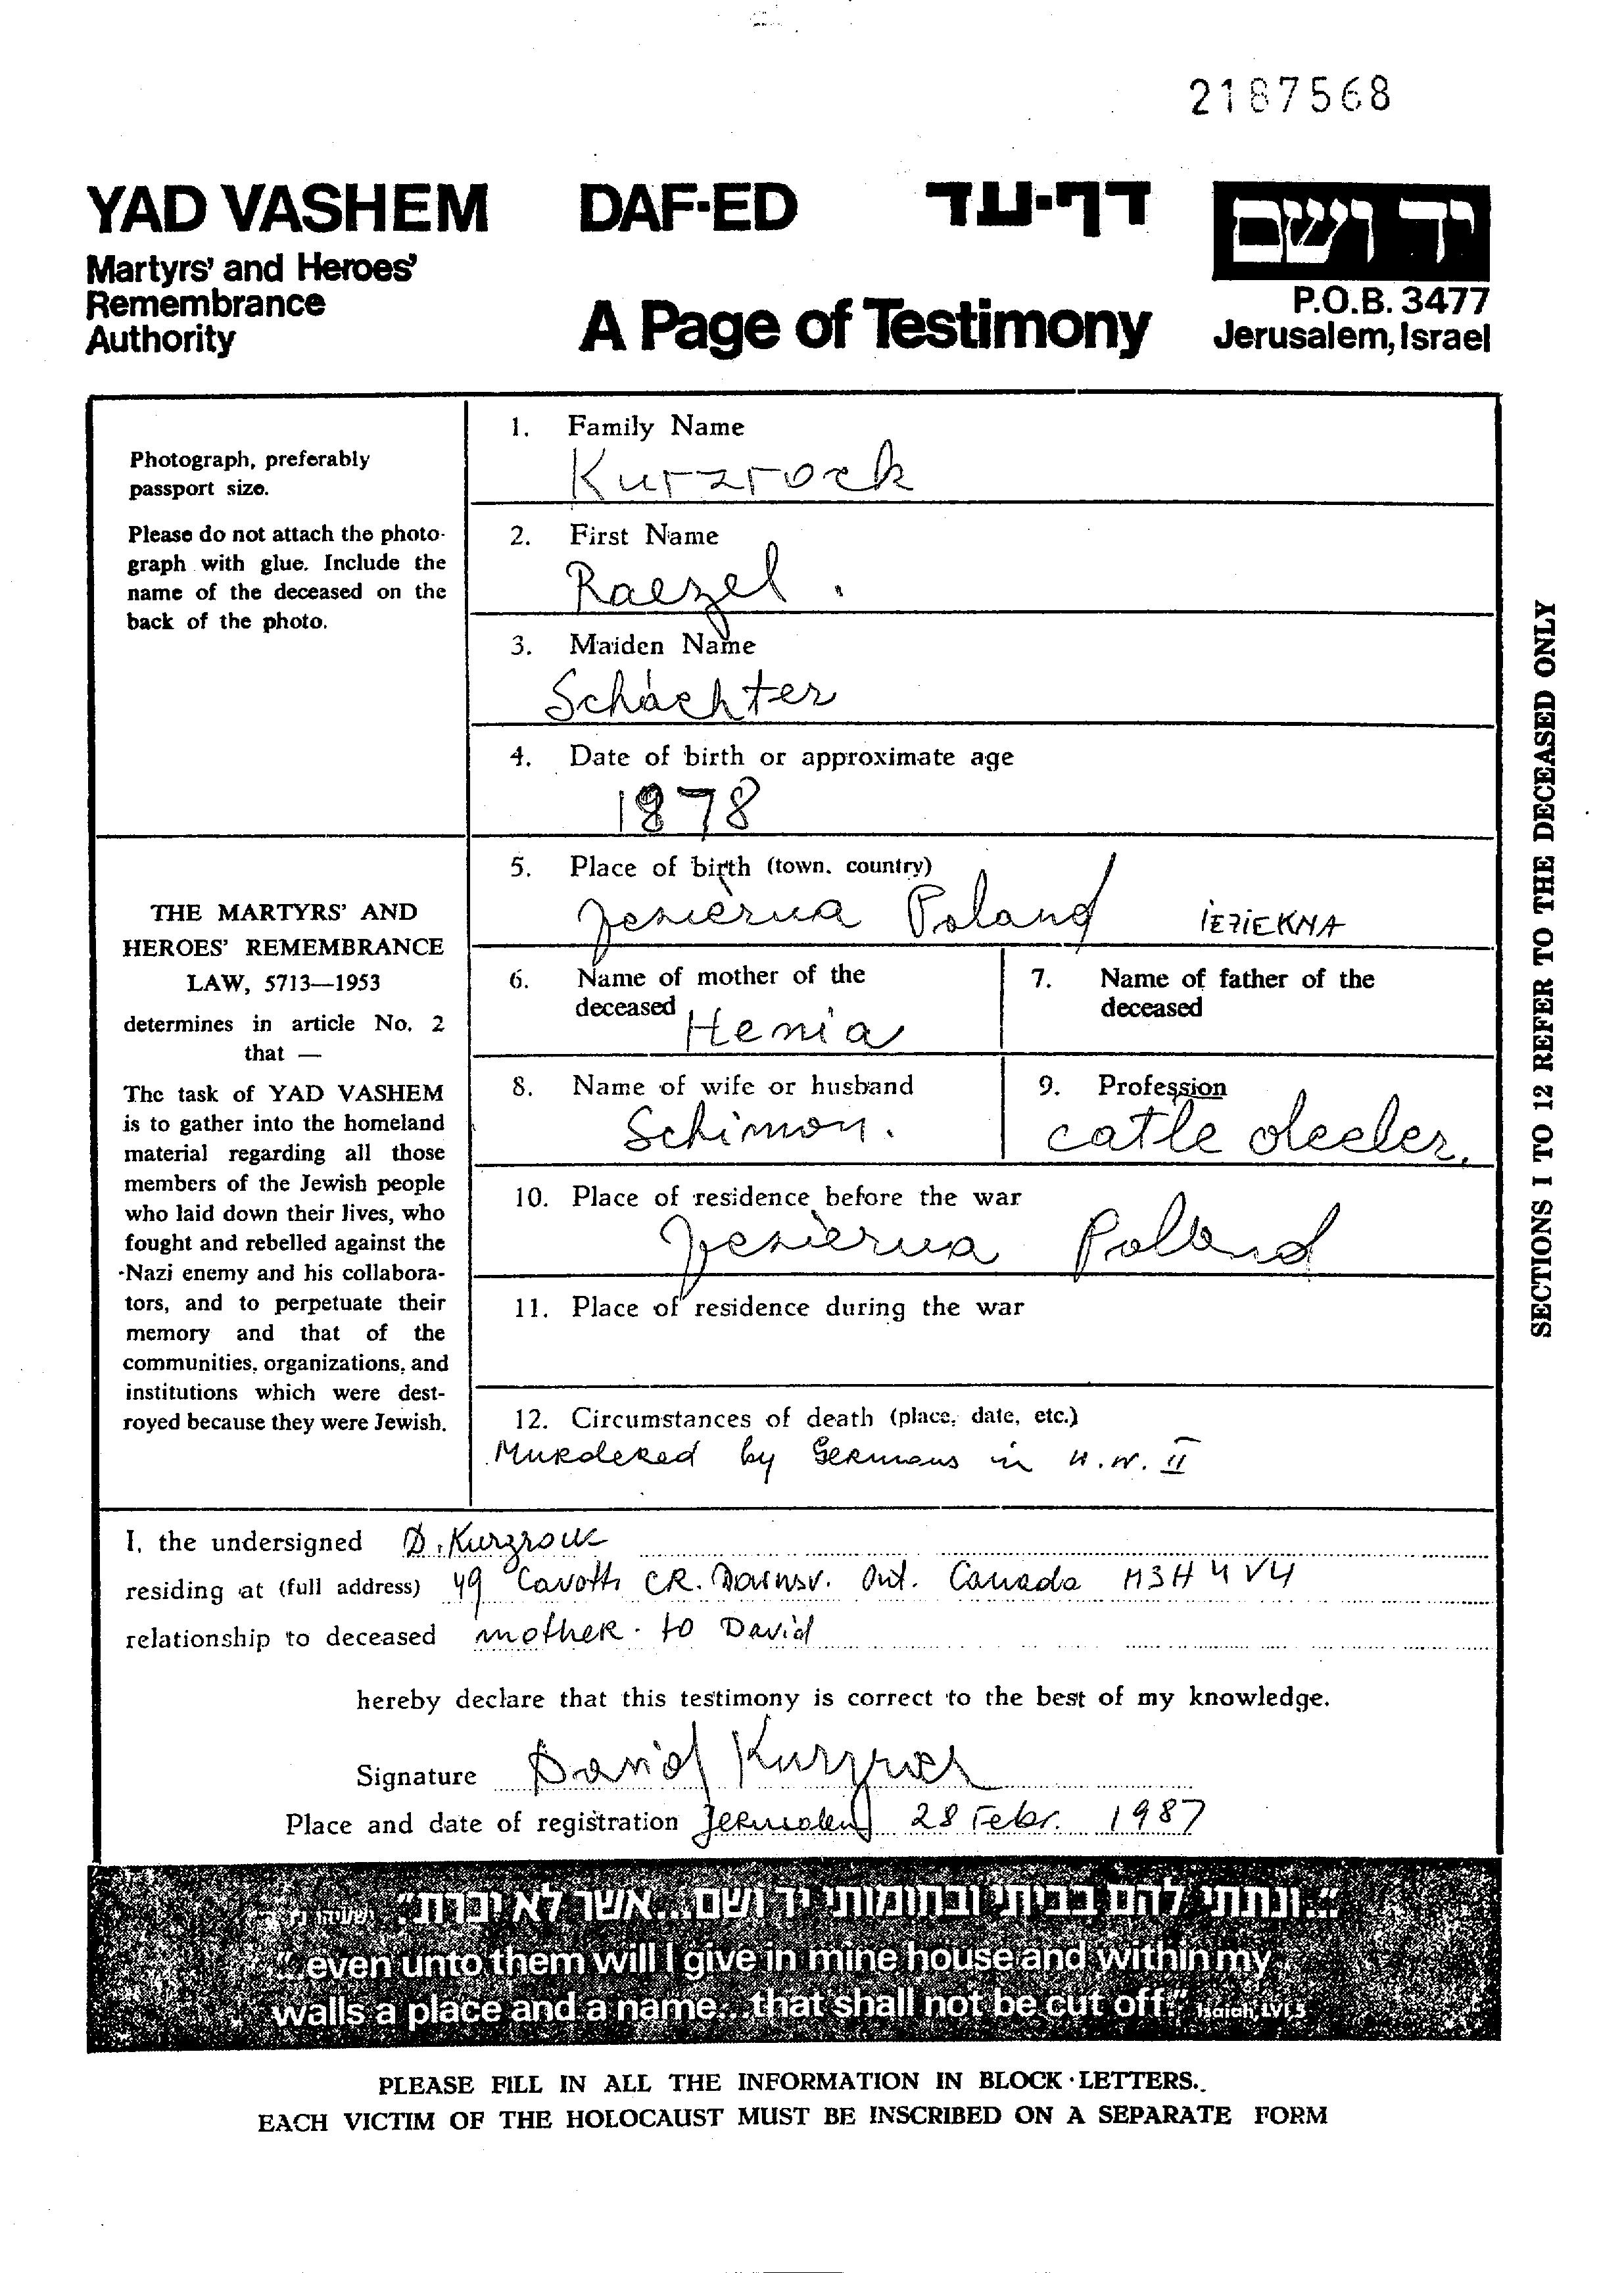 2187568
YAD VASHEM DAF-ED דף-עד יד ושם
Martyrs' and Heroes'
Remembrance
Authority
A Page of Testimony
P.O.B. 3477
Jerusalem, Israel
Photograph, preferably
passport size.
Please do not attach the photo-
graph with glue. Include the
name of the deceased on the
back of the photo.
THE MARTYRS' AND
HEROES' REMEMBRANCE
LAW, 5713—1953
determines in article No. 2
that —
The task of YAD VASHEM
is to gather into the homeland
material regarding all those
members of the Jewish people
who laid down their lives, who
fought and rebelled against the
Nazi enemy and his collabora-
tors, and to perpetuate their
memory and that of the
communities, organizations, and
institutions which were dest-
royed because they were Jewish.
1. Family Name
Kurzrock
2. First Name
Raezel.
3. Maiden Name
Schächter
4. Date of birth or approximate age
1878
5. Place of birth (town, country)
Jezierna Poland
6. Name of mother of the
deceased Henia
7. Name of father of the
deceased
8. Name of wife or husband
Schimon.
9. Profession
catle deeler.
10. Place of residence before the war
Jezierna Poland
11. Place of residence during the war
12. Circumstances of death (place, date, etc.)
Murdered by Germans in W.W. II
SECTIONS 1 TO 12 REFER TO THE DECEASED ONLY
I, the undersigned D. Kurzrock
residing at (full address) 49 CR. Ont. Canada M3H 4V4
relationship to deceased mother to David
hereby declare that this testimony is correct to the best of my knowledge.
Signature David Kurzrock
Place and date of registration Jerusalem 28 Febr. 1987
"...ונתתי להם בביתי ובחומותי יד ושם...אשר לא יכרת" ישעיהו נ"ו ה'
"...even unto them will I give in mine house and within my
walls a place and a name...that shall not be cut off." Isaiah, LVI 5
PLEASE FILL IN ALL THE INFORMATION IN BLOCK LETTERS.
EACH VICTIM OF THE HOLOCAUST MUST BE INSCRIBED ON A SEPARATE FORM